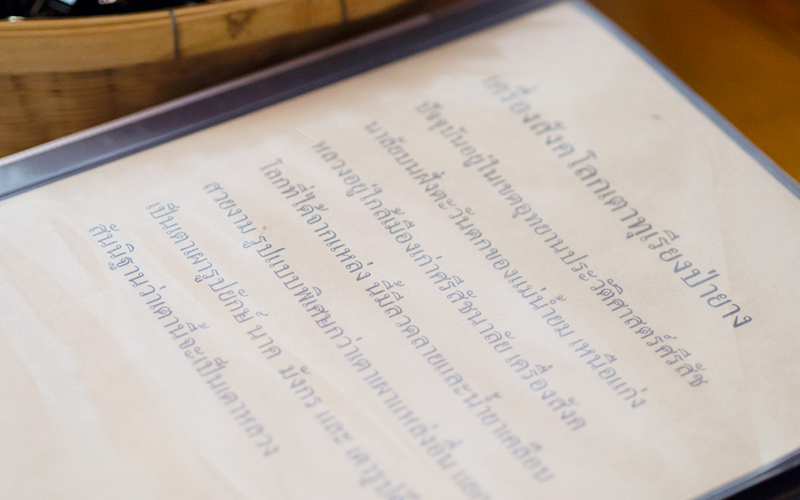 เครื่องสังคโลกเตาทุเรียงป่ายาง
ปัจจุบันอยู่ในเขตอุทยานประวัติศาสตร์ศรีสัช
นาลัยบนฝั่งตะวันตกของแม่น้ำยม เหนือแก่ง
หลวงอยู่ใกล้เมืองเก่าศรีสัชนาลัย เครื่องสังค
โลกที่ได้จากแหล่ง นี้มีลวดลายและน้ำยาเคลือบ
สวยงาม รูปแบบพิเศษกว่าเตาเผาแหล่งอื่น
เป็นเตาเผารูปยักษ์ นาค มังกร และ
สันนิฐานว่าเตานี้จะเป็นเตาหลวง